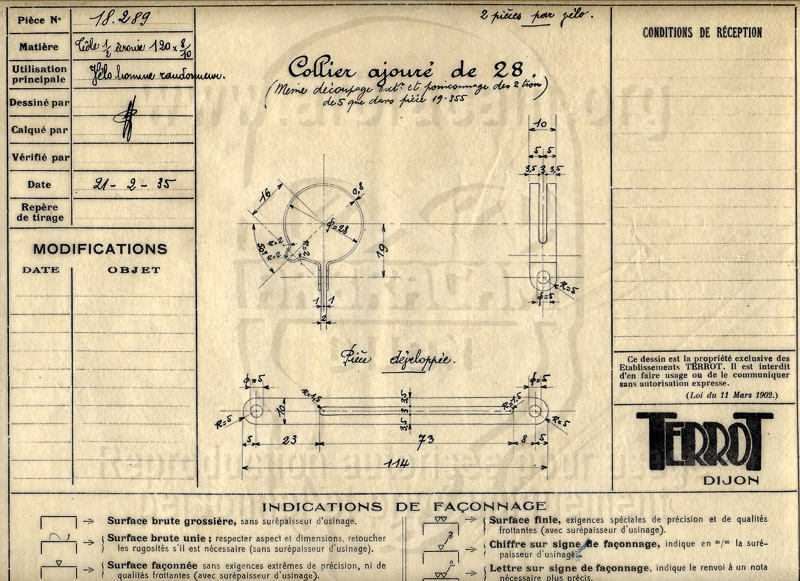 Pièce No 18.289
Matière Tôle 1/2 écrouie 120 x 8/10
Utilisation principale Vélo homme randonneur.
Dessiné par
Calqué par
Vérifié par
Date 21 - 2 - 35
Repère de tirage
MODIFICATIONS
DATE OBJET
2 pièces par vélo.
Collier ajouré de 28.
(Même découpage extr et poinçonnage des 2 trous
de 5 que dans pièce 19-355)
16
0,8
ϕ=28
R=2
R=2
50°
19
1 1
2
10
5 5
3,5 3 3,5
R=5
ϕ=5
Pièce développée.
ϕ=5
R=1,5
3,5
3
3,5
R=1,5
ϕ=5
10
R=5
R=5
5 23 73 8 5
114
CONDITIONS DE RÉCEPTION
Ce dessin est la propriété exclusive des
Etablissements TERROT. Il est interdit
d'en faire usage ou de le communiquer
sans autorisation expresse.
(Loi du 11 Mars 1902.)
TERROT
DIJON
INDICATIONS DE FAÇONNAGE
Surface brute grossière, sans surépaisseur d'usinage.
Surface brute unie : respecter aspect et dimensions, retoucher
les rugosités s'il est nécessaire (sans surépaisseur d'usinage).
Surface façonnée sans exigences extrêmes de précision, ni de
qualités frottantes (avec surépaisseur d'usinage).
Surface finie, exigences spéciales de précision et de qualités
frottantes (avec surépaisseur d'usinage).
Chiffre sur signe de façonnage, indique en m/m la suré-
paisseur d'usinage.
Lettre sur signe de façonnage, indique le renvoi à un nota
nécessaire plus précis.